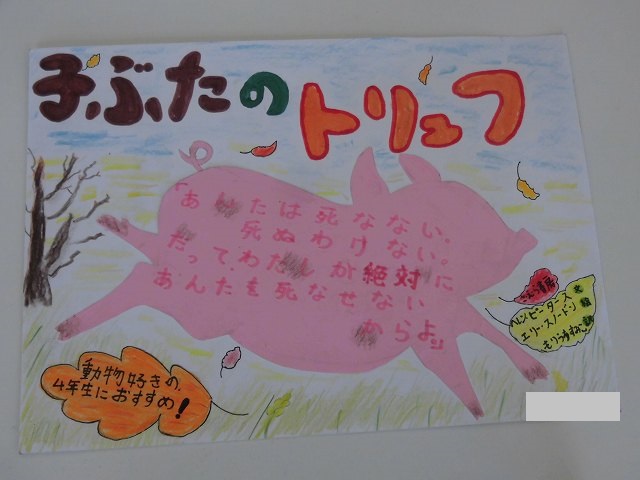 子ぶたの
トリュフ
「あんたは死なない。
死ぬわけない。
だって、わたしが絶対に
あんたを死なせない
からよ」
さ・え・ら書房
ヘレン・ピータース 文
エリー・スノードン 絵
もりうちすみこ 訳
動物好きの、
4年生におすすめ!